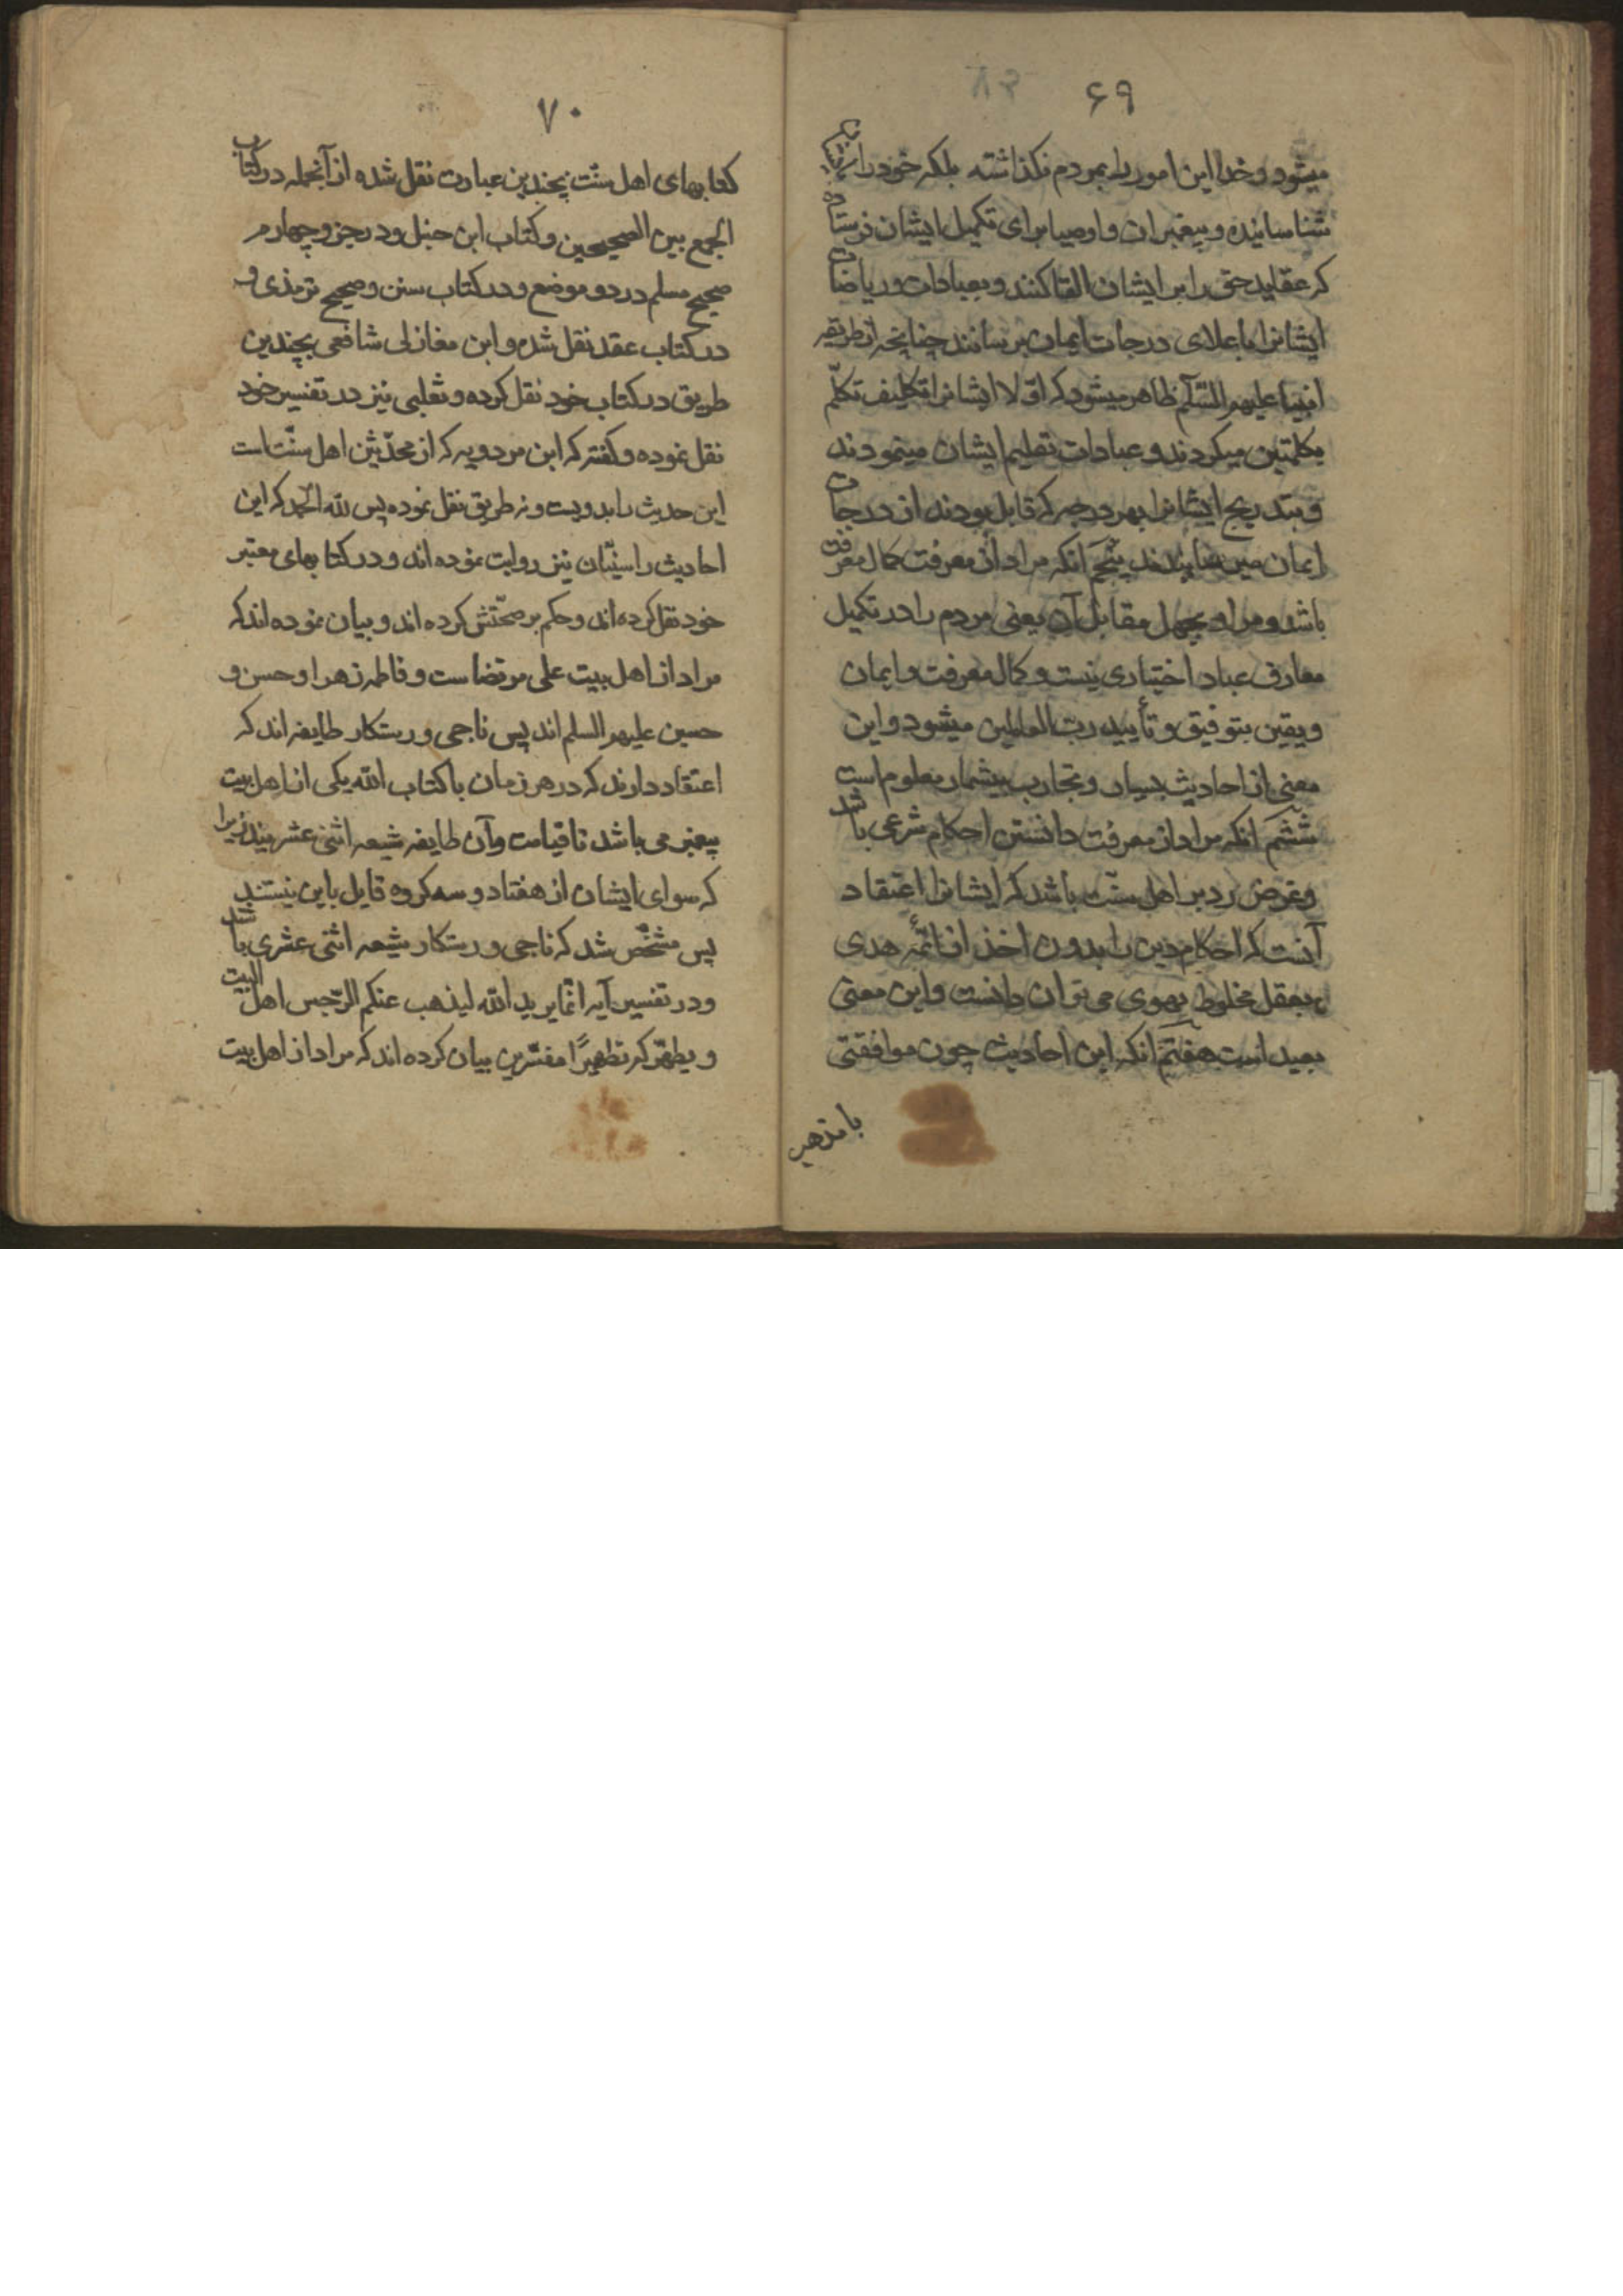 ۶۹
میشود وخدا این امور را بمردم نکذاشته بلکه خود را
شناسانیده و پیغمبران و اوصیا برای تکمیل ایشان فرستاده
که عقاید حق را بر ایشان القا کنند و بعبادات و ریاضات
ایشانرا باعلای درجات ایمان برسانند چنانچه از طریقه
انبیا علیهم السّلم ظاهر میشود که اوّلا ایشانرا تکلیف تکلّم
بکلمتین میکردند و عبادات تعلیم ایشان مینمودند
و بتدریج ایشانرا بهر درجه که قابل بودند از درجات
ایمان میرسانیدند پنجم آنکه مراد از معرفت کمال معرفت
باشد و مراد بجهل مقابل آن یعنی مردم را در تکمیل
معارف عباد اختیاری نیست و کمال معرفت و ایمان
و یقین بتوفیق و تأیید ربّ العالمین میشود و این
معنی از احادیث بسیار و تجارب بیشمار معلوم است
ششم انکه مراد از معرفت دانستن احکام شرعی باشد
وغرض رد بر اهل سنّت باشد که ایشانرا اعتقاد
آنست که احکام دین را بدون اخذ از ائمّه هدی
بعقل مخلوط بهوی می توان دانست واین معنی
بعید است هفتم انکه این احادیث چون موافقتی
بامذهب
۷۰
کتابهای اهل سنّت بچندین عبارت نقل شده از آنجمله در کتاب
الجمع بین الصحیحین و کتاب ابن حنبل و در جزو چهارم
صحیح مسلم در دو موضع و در کتاب سنن و صحیح ترمذی و
در کتاب عقد نقل شده و ابن مغازلی شافعی بچندین
طریق در کتاب خود نقل کرده و ثعلبی نیز در تفسیر خود
نقل نموده و کفته که ابن مردویه که از محدّثین اهل سنّت است
این حدیث را بدویست و نه طریق نقل نموده پس لله الحمد که این
احادیث را سنّیان نیز روایت نموده اند و در کتابهای معتبر
خود نقل کرده اند و حکم بر صحّتش کرده اند و بیان نموده اند که
مراد از اهل بیت علی مرتضاست و فاطمه زهرا و حسن و
حسین علیهم السلم اند پس ناجی و رستکار طایفه اند که
اعتقاد دارند که در هر زمان با کتاب الله یکی از اهل بیت
پیغمبر می باشد تا قیامت وآن طایفه شیعه اثنی عشریند زیرا
که سوای ایشان از هفتاد و سه کروه قایل باین نیستند
پس مشخّص شد که ناجی و رستکار شیعه اثنی عشری باشد
و در تفسیر آیه انّما یرید الله لیذهب عنکم الرّجس اهل البیت
و یطهّرکم تطهیرًا مفسّرین بیان کرده اند که مراد از اهل بیت